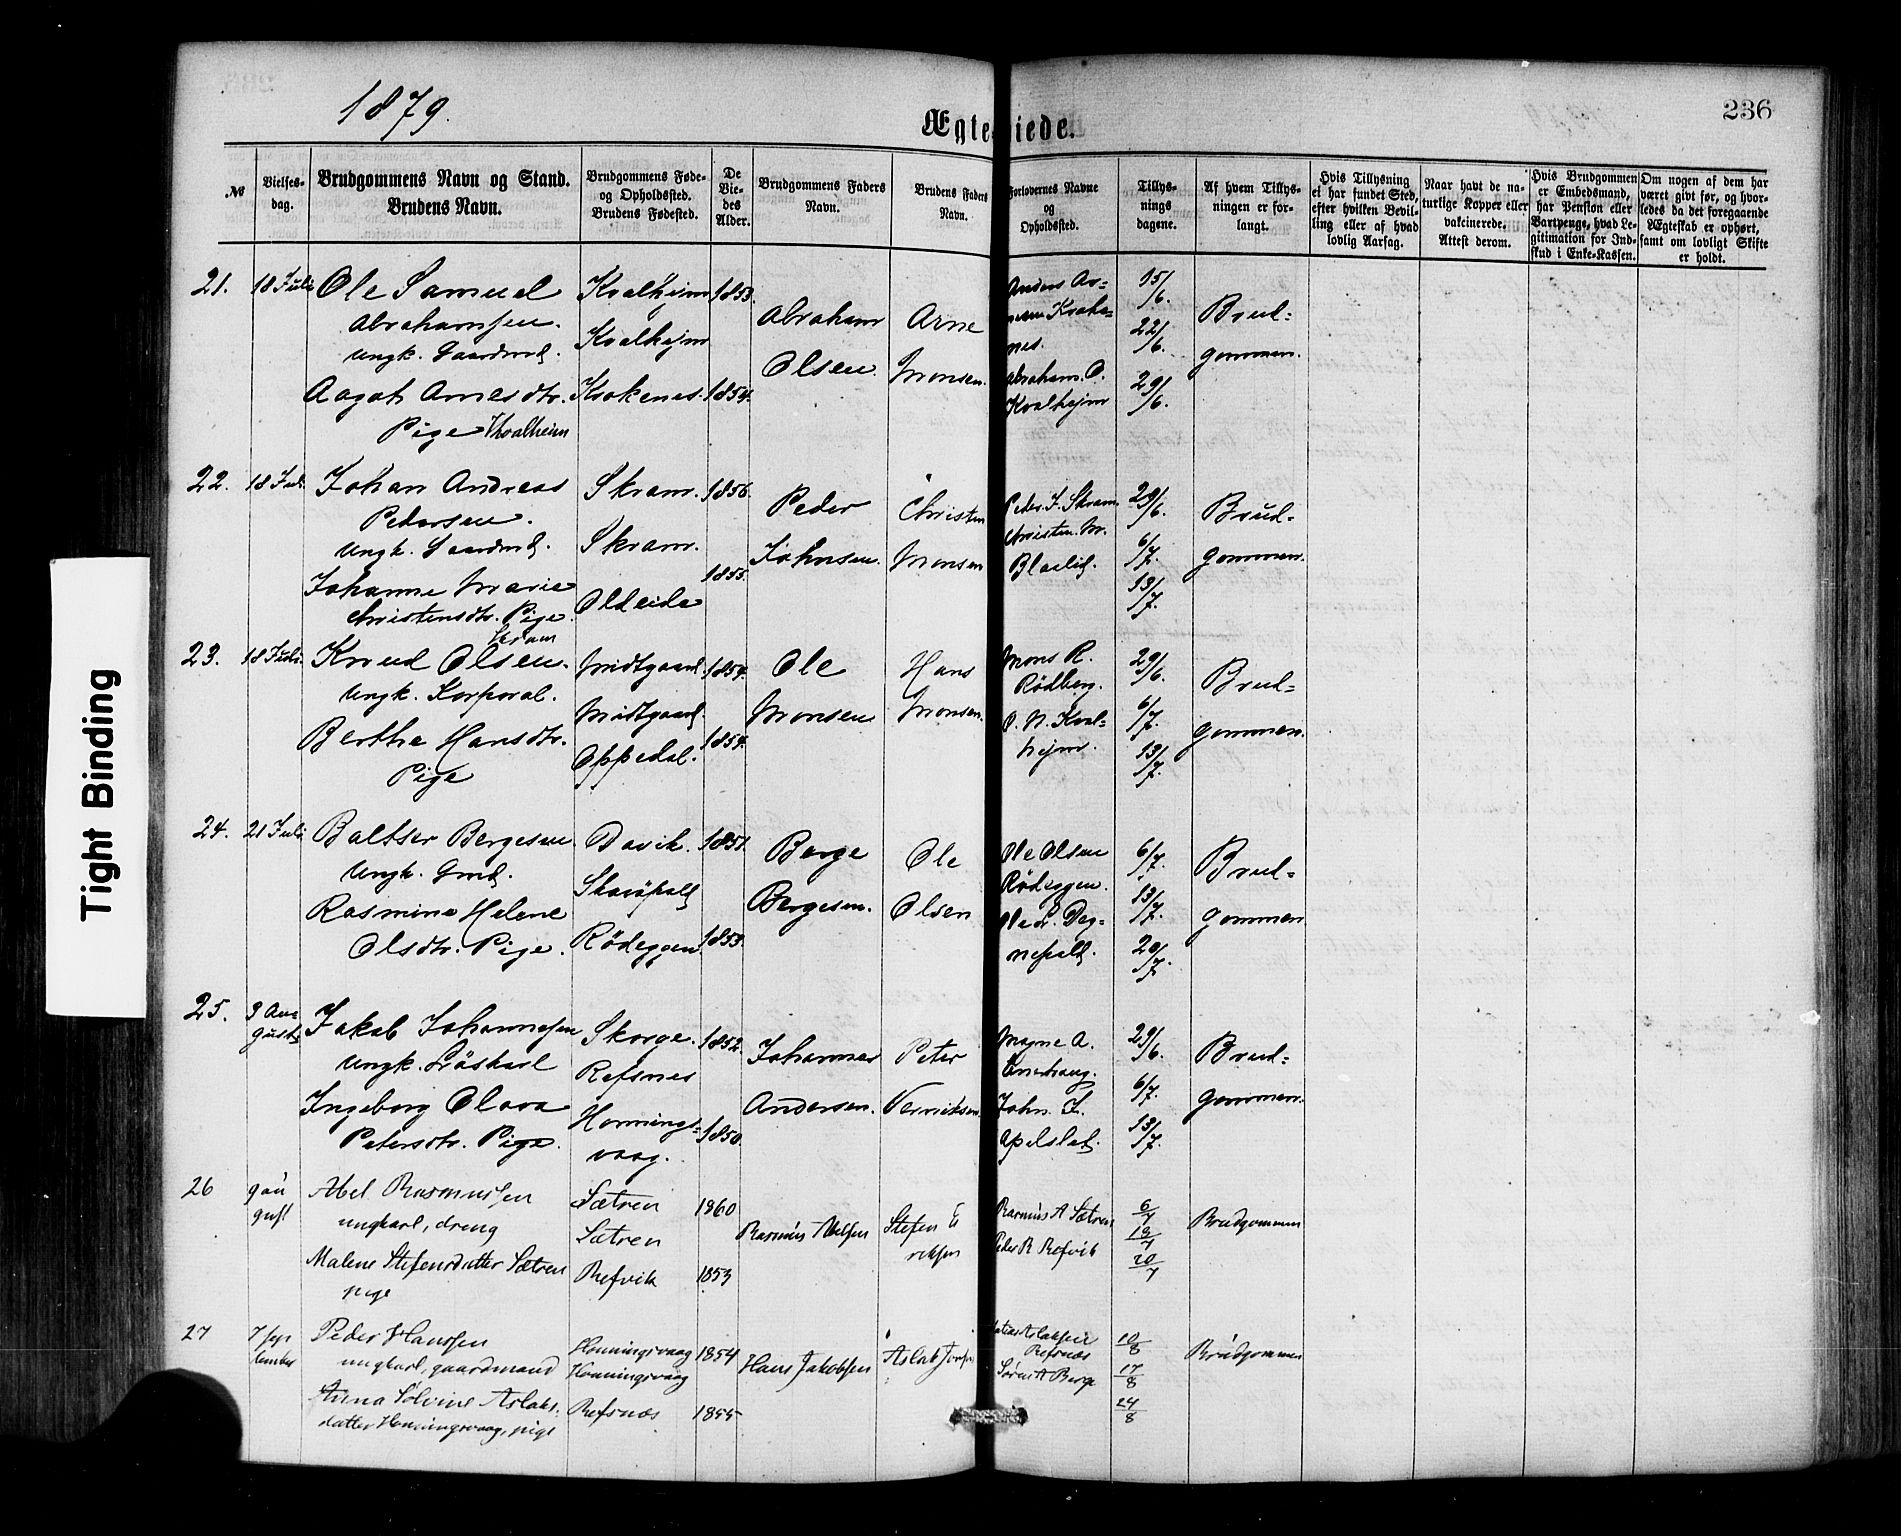 1879.
Ægteviede.
236
Tight Binding
№
Vielses-
dag.
Brudgommens Navn og Stand.
Brudens Navn.
Brudgommens Føde-
og Opholdssted.
Brudens Fødested.
De
Vie-
des
Alder.
Brudgommens Faders
Navn.
Brudens Faders
Navn.
Forlovernes Navne
og
Opholdssted.
Tillys-
nings
dagene.
Af hvem Tillys-
ningen er for-
langt.
Hvis Tillysning
ei har fundet Sted,
efter hvilken Bevil-
ling eller af hvad
lovlig Aarsag.
Naar havt de na-
turlige Kopper eller
vakcinerede.
Attest derom.
Hvis Brudgommen
er Embedsmand,
har Pension eller
Vartpenge, hvad Le-
gitimation for Ind-
skud i Enke-Kassen.
Om nogen af dem har
været givt før, og hvor-
ledes da det foregaaende
Ægteskab er ophørt,
samt om lovligt Skifte
er holdt.
21.
18 Juli
Ole Samuel
Abrahamsen.
Ungk. Gaardmd.
Aagot Arnesdtr.
Pige Kvalheim
Kvalhejm
Kvalhejm
Krokenes.
1853.
1854.
Abraham
Olsen.
Arne
Monsen.
Anders Ar=
nesen Kroke=
nes.
Abraham. O.
Kvalhejm
15/6.
22/6.
29/6.
Brud=
gommen.
22.
18 Juli
Johan Andreas
Pedersen.
Ungk. Gaardmd.
Johanne Marie
Christensdtr. Pige.
Skram
Skram.
Skram.
Oldeide
1856.
1855.
Peder
Johnsen.
Christen
Monsen
Peder J. Skram
Christen M.
Blaalid.
29/6.
6/7.
13/7.
Brud=
gommen.
23.
18 Juli
Knud Olsen.
Ungk. Korporal.
Berthe Hansdtr.
Pige
Midtgaard
Midtgaard.
Oppedal.
1854.
1854.
Ole
Monsen
Hans
Monsen.
Mons R.
Rødberg.
O. N. Kval=
hejm.
29/6.
6/7.
13/7.
Brud=
gommen.
24.
21 Juli
Baltser Bergesen
Ungk. Gmd.
Rasmine Helene
Olsdtr. Pige.
Davik.
Rødeggen.
1851.
1853.
Berge
Bergesen.
Ole
Olsen
Ole Olsen
Rødeggen.
6/7.
13/7.
20/7.
Brud=
gommen
25.
3 Au=
gust
Jakob Johannesen
Ungk. Løskarl
Ingeborg Olava
Petersdtr. Pige.
Skorge.
Refsnes
Honnings=
vaag.
1852.
1850.
Johannes
Andersen.
Peter
Magne A.
John. J.
29/6.
6/7.
13/7.
Brud=
gommen.
26
9 au
gust
Abel Rasmussen
ungkarl, dreng
Malene Stefensdatter Sætren
pige
Sætren
Sætren
Refvik
1860
1853
Rasmus Abelsen
Stefen E
riksen
Rasmus A Sætren
Peder R Refvik
6/7
13/7
20/7
Brudgommen
27
7 sep
tember
Peder Hanssen
ungkarl, gaardmand
Anna Sølvine Aslaks-
datter Honningsvaag, pige
Honningsvaag
Honningsvaag
Refsnæs
1854
1855
Hans Jakobsen
Aslak
Aslaksen
Refsnæs
Søren A Berge
10/8
17/8
24/8
Brudgommen